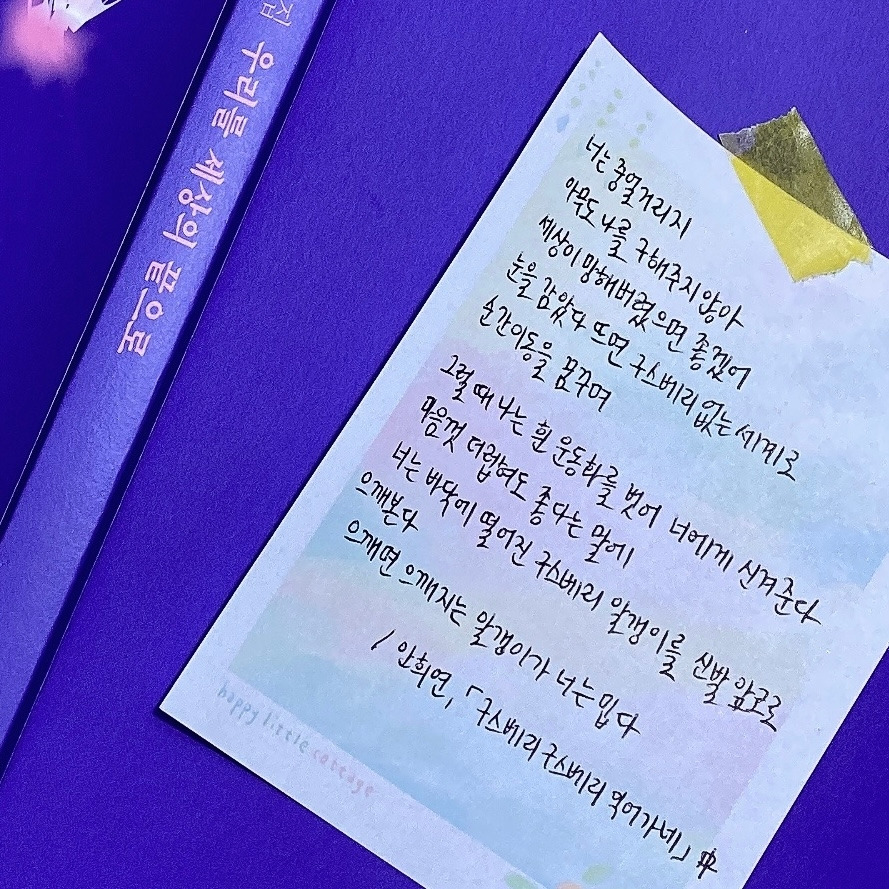 집 우리를 세상의 끝으로
너는 중얼거리지
아무도 나를 구해주지 않아
세상이 망해버렸으면 좋겠어
눈을 감았다 뜨면 구스베리 없는 세계로
순간이동을 꿈꾸며
그럴 때 나는 흰 운동화를 벗어 너에게 신겨 준다
마음껏 더럽혀도 좋다는 말에
너는 바닥에 떨어진 구스베리 알갱이를 신발 앞코로
으깨본다
으깨면 으깨지는 알갱이가 너는 밉다
/ 안희연, 「구스베리 구스베리 익어가네」 中
happy little cottage